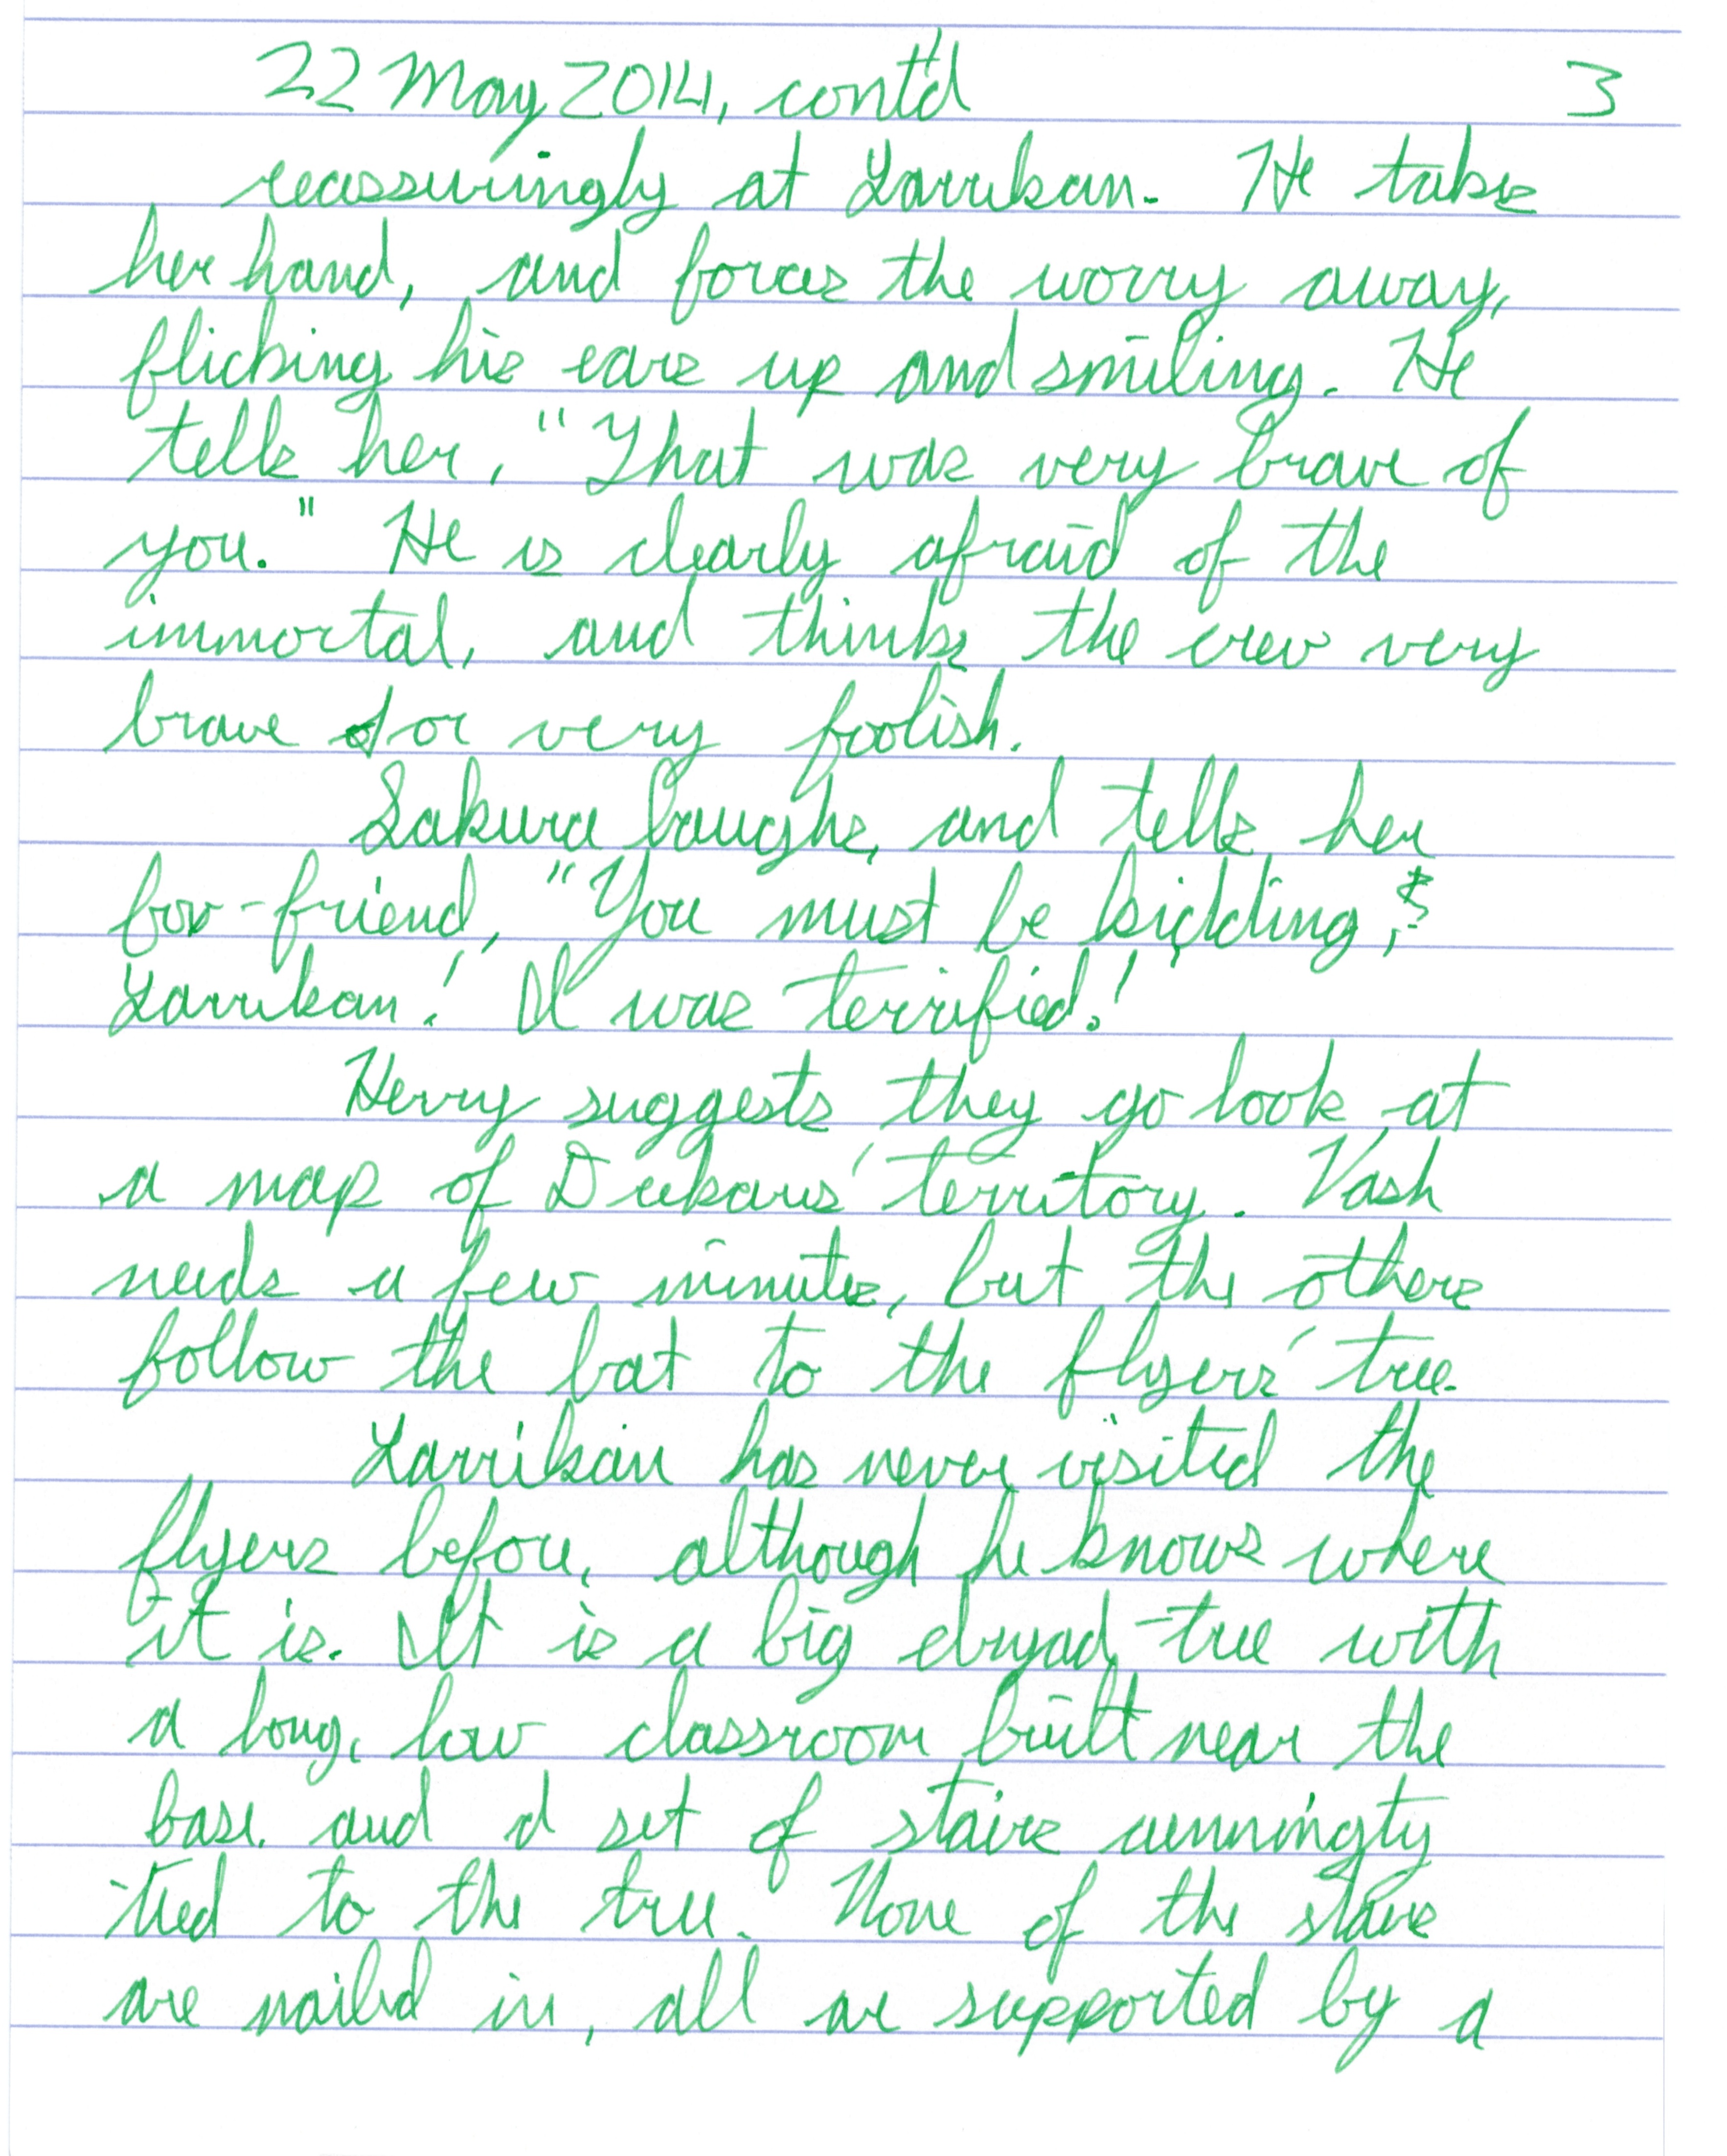 22 May 2014, cont'd 3
reassuringly at Larrikan. He takes
her hand, and forces the worry away,
flicking his ears up and smiling. He
tells her, "That was very brave of
you." He is clearly afraid of the
immortal, and thinks the crew very
brave or very foolish.
Sakura laughs, and tells her
fox-friend, "You must be kidding,
Larrikan! I was terrified!
Hervy suggests they go look at
a map of territory. Vash
needs a few minutes, but the others
follow the bat to the flyers' tree.
Larrikan has never visited the
flyers before, although he knows where
it is. It is a big dryad-tree with
a long, low classroom built near the
base and a set of stairs cunningly
tied to the tree. None of the stairs
are nailed in, all are supported by a